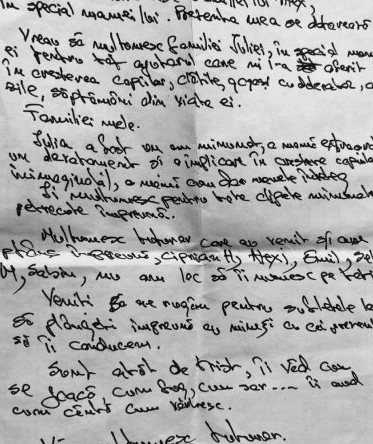 în special mamei lui. Prezența mea se datorează
Vreau să mulțumesc familiei Iuliei, în special mamei
ei pentru tot ajutorul care mi l-a oferit
în creșterea copiilor, clătite, gogoși cu dulceață, a
zile, săptămâni din viața ei.
Familiei mele.
Iulia a fost un om minunat, o mamă extraord
un devotament și o implicare în creștere copiilor
inimaginabil, o mamă cum doar mamele înțeleg
Îi mulțumesc pentru toate clipele minunate
petrecute împreună.
Mulțumesc tuturor care au venit și am
plâns împreună, Ciprian H, Alexi, Emil,
M, Sabin, nu am loc să îi numesc pe toți
Veniți să ne rugăm pentru sufletele lor
să plângeți împreună cu mine și cu cei prezenți
să îi conducem.
Sunt atât de trist, îi văd cum
se joacă cum fug, cum sar... îi aud
cum cântă cum vorbesc.
Mulțumesc tuturor.